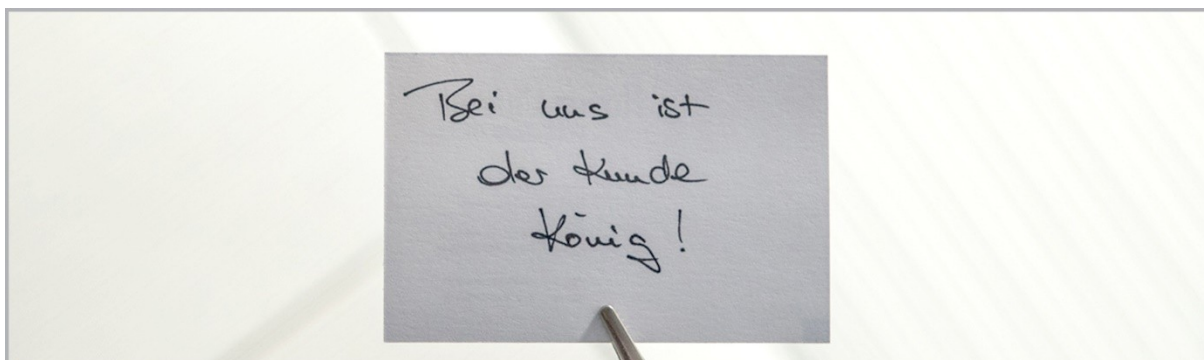 Bei uns ist
der Kunde
König!